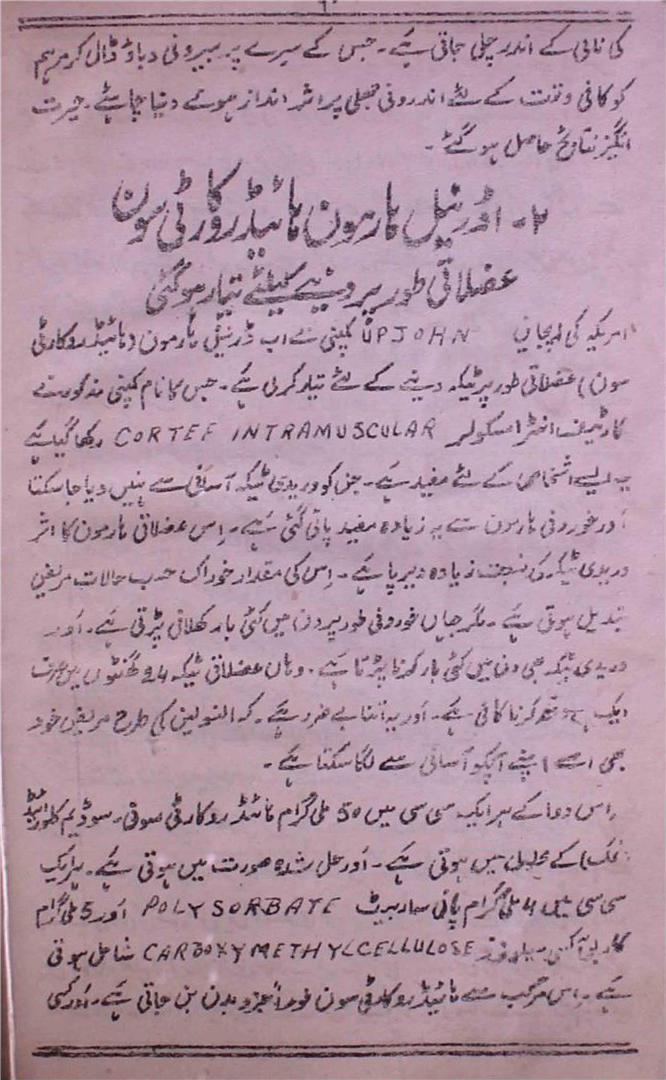 کی نالی کے اندر چلی جاتی ہے۔ جس کے سرے پر بیرونی دباؤ ڈال کر مرہم
کو کافی وقت کے لئے اندرونی جھلی پر اثر انداز ہونے دینا چاہئے۔ حیرت
انگیز نتائج حاصل ہو گئے۔
۲۔ اڈرنیل ہارمون ہائیڈروکارٹی سون
عضلاتی طور پر دینے کیلئے تیار ہو گئی
امریکہ کی UPJOHN کمپنی نے اب ڈرنیلی ہارمون (ہائیڈروکارٹی
سون) عضلاتی طور پر ٹیکہ دینے کے لئے تیار کر لی ہے۔ جس کا نام کمپنی مذکور نے
کارٹیف انٹرا مسکولر CORTEF INTRAMUSCULAR رکھا گیا ہے
یہ ایسے اشخاص کے لئے مفید ہے۔ جن کو وریدی ٹیکہ آسانی سے نہیں دیا جا سکتا
اور خوردنی ہارمون سے یہ زیادہ مفید پائی گئی ہے۔ اِس عضلاتی ہارمون کا اثر
وریدی ٹیکہ کی نسبت زیادہ دیرپا ہے۔ اِس کی مقدار خوراک حسب حالات مریض
تبدیل ہوتی ہے۔ مگر جہاں خوردنی طور پر دن میں کئی بار کھلانی پڑتی ہے۔ اور
وریدی ٹیکہ بھی دن میں کئی بار کرنا پڑتا ہے۔ وہاں عضلاتی ٹیکہ 24 گھنٹوں میں صرف
ایک دفعہ کرنا کافی ہے۔ اور یہ اتنا بے ضرر ہے۔ کہ انسولین کی طرح مریض خود
بھی اسے اپنے آپکو آسانی سے لگا سکتا ہے۔
اِس دوا کے ہر ایک سی سی میں 50 ملی گرام ہائیڈروکارٹی سون۔ سوڈیم کلورائیڈ
(نمک) کے محلول میں ہوتی ہے۔ اور حل شدہ صورت میں ہوتی ہے۔ ہر ایک
سی سی میں 4 ملی گرام پالی ساربیٹ POLYSORBATE اور 5 ملی گرام
کاربی آکسی CARBOXYMETHYLCELLULOSE شامل ہوتی
ہے۔ اِس مرکب سے ہائیڈروکارٹی سون فوراً جزو بدن بن جاتی ہے۔ اور کسی